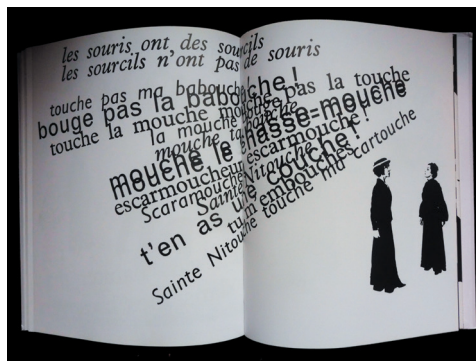 les souris ont, des sourcils
les sourcils n'ont pas de souris
touche pas ma babouche
bouge pas la babouche!
touche la mouche mouche pas la touche
la mouche
mouche ta
mouche le chasse=mouche
escarmoucheur escarmouche!
Scaramouche
Sainte Nitouche
t'en as une couche!
tu m'embouches
Sainte Nitouche touche ma cartouche